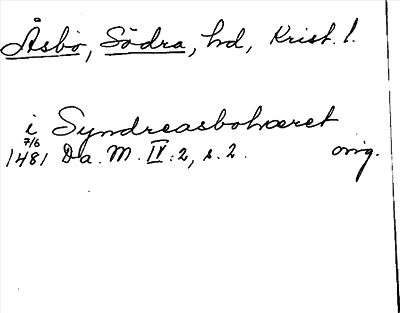 Åsbo, Södra, hd, Krist. l.
i Syndreasbohæret
7/6
1481 Da. M. IV:2, s. 2. orig.